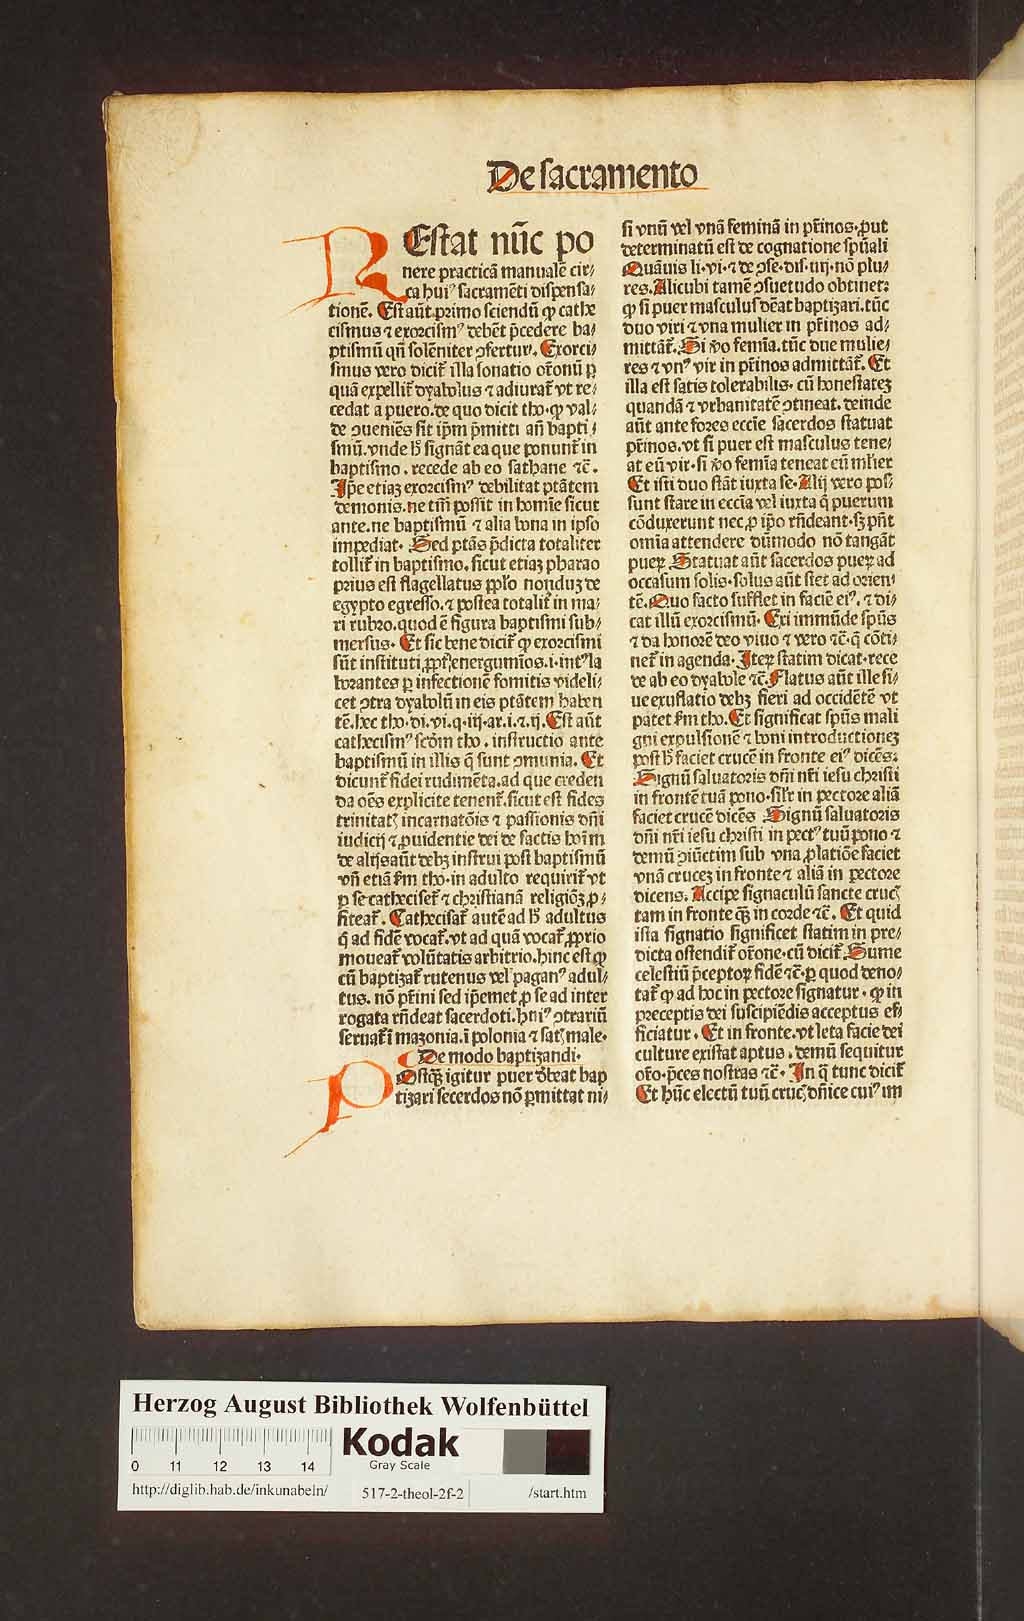 De sacramento
REstat nūc po
nere practicā manualē cir⸗
ca huiꝰ sacramēti dispensa⸗
tionē. Est aūt primo sciendū ꝙ cathe
cismus ⁊ exorcismꝰ debēt p̄cedere ba⸗
ptismū qn̄ solēniter ꝯferturˢ. Exorci⸗
smus vero dicit᷑ illa sonatio or̄onū ꝑ
quā expellit᷑ dyabolus ⁊ adiurat᷑ vt re⸗
cedat a puero. de quo dicit tho. ꝙ val⸗
de ꝯueniēs sit ip̄m p̄mitti an̄ bapti⸗
smū. vnde hͦ signāt ea que ponunt᷑ in
baptismo. recede ab eo sathane ⁊c̄.
Ip̄e etiaꝫ exorcismꝰ debilitat ptātem
demonis. ne tm̄ possit in homīe sicut
ante. ne baptismū ⁊ alia bona in ipso
impediat. Sed ptās p̄dicta totaliter
tollit᷑ in baptismo. sicut etiaꝫ pharao
prius est flagellatus pp̄lo nonduꝫ de
egypto egresso. ⁊ postea totalit᷑ in ma⸗
ri rubro. quod ē figura baptismi sub⸗
mersus. Et sic bene dicit᷑ ꝙ exorcismi
sūt instituti ꝓpt᷑ energumīos. i. intꝰ la
borantes ꝑ infectionē fomitis videli⸗
cet ꝯtra dyabolū in eis ptātem haben
tē. hec tho. di. vi. q. iij. ar. i. ⁊ ij. Est aūt
cathecismꝰ scd̄m tho. instructio ante
baptismū in illis q̄ sunt ꝯmunia. Et
dicunt᷑ fidei rudimēta. ad que creden
da oēs explicite tenent᷑. sicut est fides
trinitatꝭ incarnatōis ⁊ passionis dn̄i
iudicij ⁊ ꝓuidentie dei de factis hoīm
de alijs aūt debꝫ instrui post baptismū
vn̄ etiā fm tho. in adulto requirit᷑ vt
ꝑ se catheciset᷑ ⁊ christianā religiōꝫ ꝓ⸗
fiteat᷑. Cathecisat᷑ autē ad hͦ adultus
q̄ ad fidē vocat᷑. vt ad quā vocat᷑ ꝓprio
moueat᷑ volūtatis arbitrio. hinc est ꝙ
cū baptizat᷑ rutenus vel paganꝰ adul⸗
tus. nō pr̄ini sed ip̄emet ꝓ se ad inter
rogata rn̄deat sacerdoti. hꝰiꝰ ꝯtrariū
seruat᷑ ī mazonia. ī polonia ⁊ satꝭ male.
¶ De modo baptizandi.
POstqꝫ igitur puer dꝫbeat bap
tizari secerdos nō ꝑmittat ni⸗
si vnū vel vnā feminā in pr̄inos. ꝓut
determinatū est de cognatione spūali
Quāuis li. vi. ⁊ de ꝯse. dis. iiij. nō plu⸗
res. Alicubi tamē ꝯsuetudo obtinet:
ꝙ si puer masculus dēat baptizari. tūc
duo viri ⁊ vna mulier in pr̄inos ad⸗
mittāt᷑. Si vͦo femīa. tūc due mulie⸗
res ⁊ vnꝰ vir in pr̄inos admittāt᷑. Et
illa est satis tolerabilis. cū honestateꝫ
quandā ⁊ vrbanitatē ꝯtineat. deinde
aūt ante fores eccīe sacerdos statuat
pr̄inos. vt si puer est masculus tene⸗
at eū vir. si vͦo femīa teneat eū ml̄ier
Et isti duo stāt iuxta se. Alij vero pos⸗
sunt stare in eccīa vel iuxta q̄ puerum
cōduxerunt nec ꝓ ip̄o rn̄deant. sꝫ pn̄t
omīa attendere dūmodo nō tangāt
pueꝝ. Statuat aūt sacerdos pueꝝ ad
occasum solis. solus aūt stet ad orien⸗
tē. Quo facto sufflet in faciē eiꝰ. ⁊ di⸗
cat illū exorcismū. Exi immūde spūs
⁊ da honorē deo viuo ⁊ vero ⁊c̄ q̄ cōti⸗
net᷑ in agenda. Iteꝝ statim dicat. rece
de ab eo dyabole ⁊c̄. Flatus aūt ille si⸗
ue exuflatio debꝫ fieri ad occidētē vt
patet fm tho. Et significat spūs mali
gni expulsionē ⁊ boni introductioneꝫ
post hͦ faciet crucē in fronte eiꝰ dicēs:
Signū saluatoris dn̄i nr̄i iesu christi
in frontē tuā pono. silr̄ in pectore aliā
faciet crucē dicēs Signū saluatoris
dn̄i nr̄i iesu christi in pectꝰ tuū pono ⁊
demū ꝯiūctim sub vna ꝓlatiōe faciet
vnā cruceꝫ in fronte ⁊ aliā in pectore
dicens. Accipe signaculū sancte crucꝭ
tam in fronte qꝫ in corde ⁊c̄. Et quid
ista signatio significet statim in pre⸗
dicta ostendit᷑ or̄one. cū dicit᷑. Sume
celestiū p̄ceptoꝝ fidē ⁊c̄. ꝑ quod deno⸗
tat᷑ ꝙ ad hoc in pectore signatur. ꝙ in
preceptis dei suscipiēdis acceptus ef⸗
ficiatur. Et in fronte. vt leta facie dei
culture existat aptus. demū sequitur
or̄o. p̄ces nostras ⁊c̄. In q̄ tunc dicit᷑
Et hūc electū tuū crucꝭ dn̄ice cuiꝰ im
Herzog August Bibliothek Wolfenbüttel
0 11 12 13 14
Kodak
Gray Scale
http://diglib.hab.de/inkunabeln/ 517-2-theol-2f-2 /start.htm